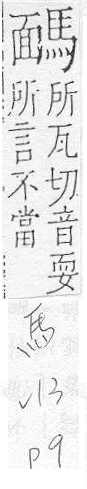 ⿰面馬
所瓦切音耍
所言不當
馬
v13
p9